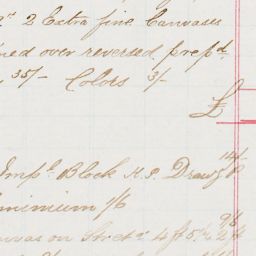 2 Extra fine Canvases
ned over reversed prepd.
35/- Colors 3/-
£
Impl. Block H.P. Drawg
minium 1/6
nvas on Stretr 4 ft 5 in